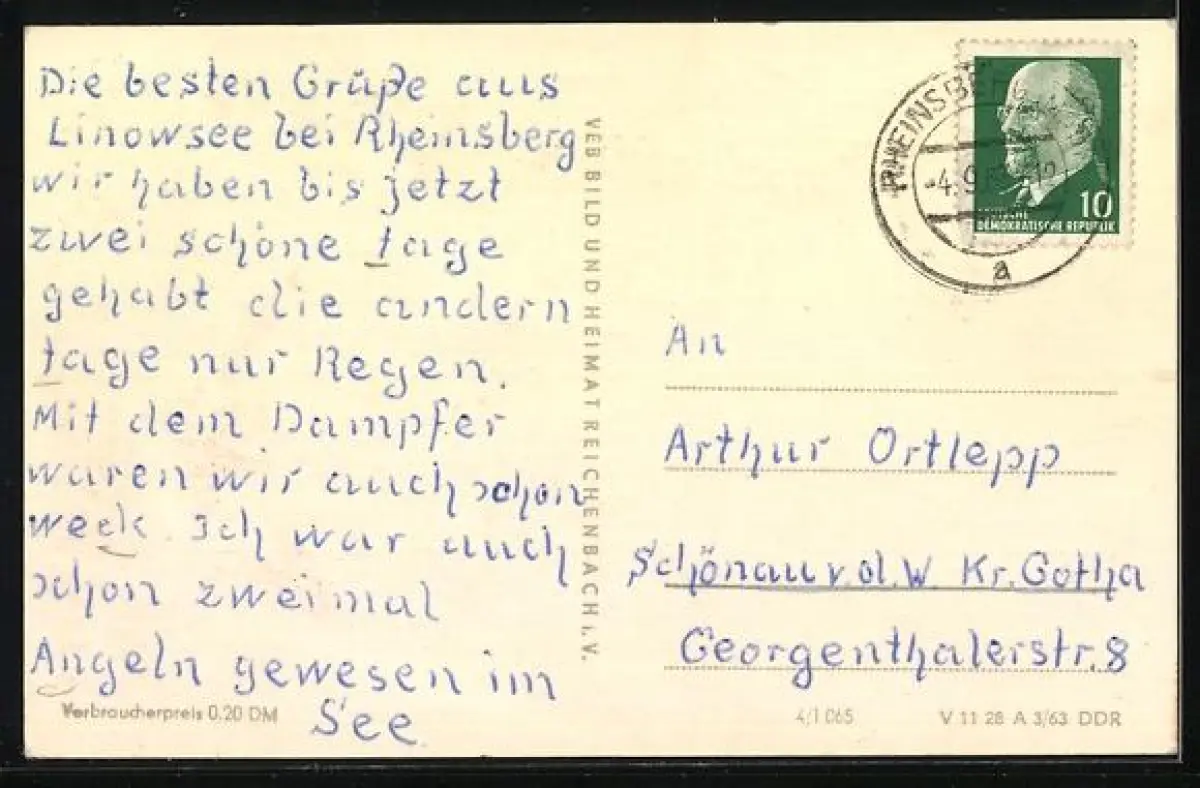 Die besten Grüße aus
Linowsee bei Rheinsberg
wir haben bis jetzt
zwei schöne tage
gehabt die andern
tage nur Regen.
Mit dem Dampfer
waren wir auch schon
week. Ich war auch
schon zweimal
Angeln gewesen im
See
Verbraucherpreis 0.20 DM
VEB BILD UND HEIMAT REICHENBACH i. V.
RHEINSBERG
-4.9.
a
10
DEUTSCHE
DEMOKRATISCHE REPUBLIK
An
Arthur Ortlepp
Schönau v. d. W Kr. Gotha
Georgenthalerstr. 8
4/1 065
V 11 28 A 3/63 DDR